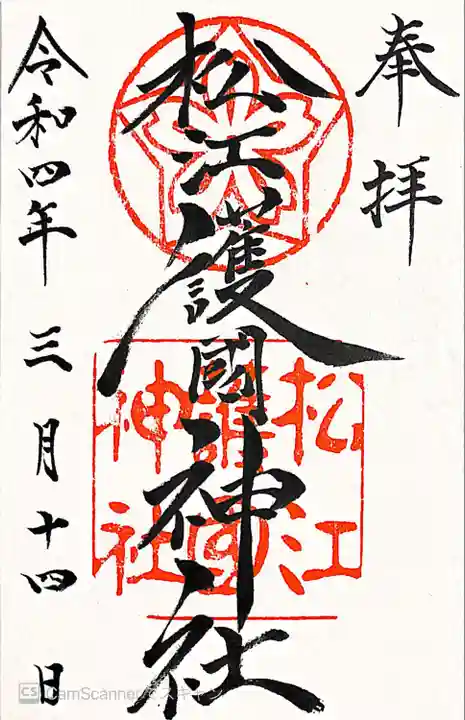 奉拝
松江護國神社
松江
護國
神社
令和四年 三月十四日
CS CamScannerでスキャン